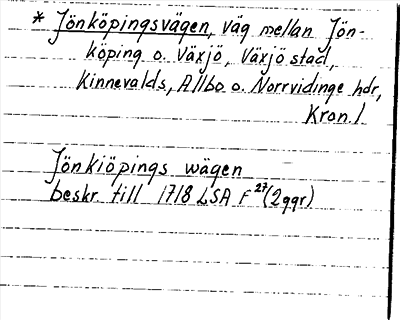 * Jönköpingsvägen, väg mellan Jön-
köping o. Växjö, Växjö stad,
Kinnevalds, Allbo o. Norrvidinge hdr,
Kron. l
Jönkiöpings wägen
beskr. till 1718 LSA F 27 (2ggr)